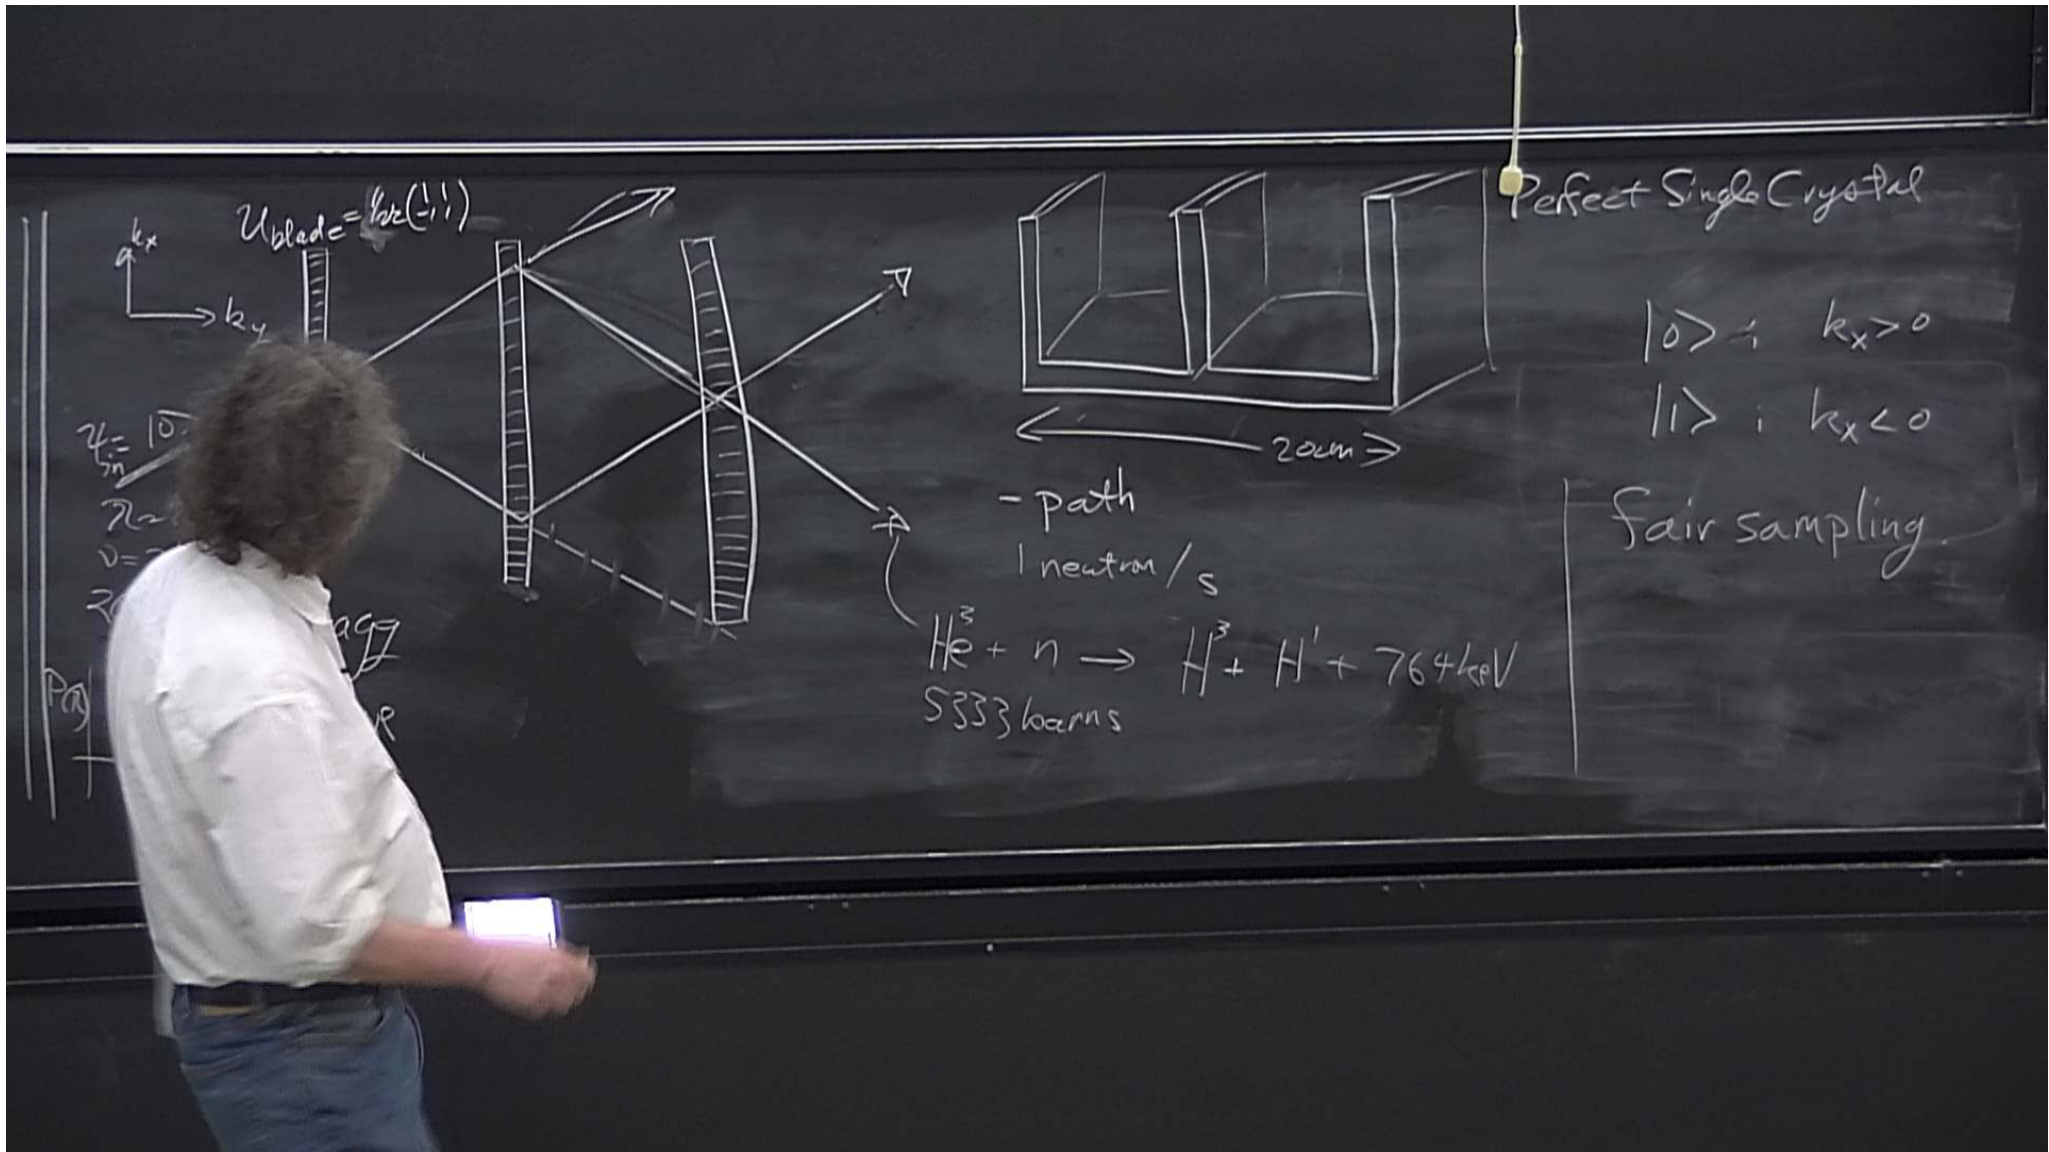 kx
ky
Ublade = 1/√2 (1 1 -1 1)
Ψin = |0
λ=
υ=
agg
P(λ)
R
20cm
Perfect Single Crystal
|0> ; kx>0
|1> ; kx<0
fair sampling.
- path
1 neutron/s
He³ + n → H³ + H¹ + 764keV
5333 barns